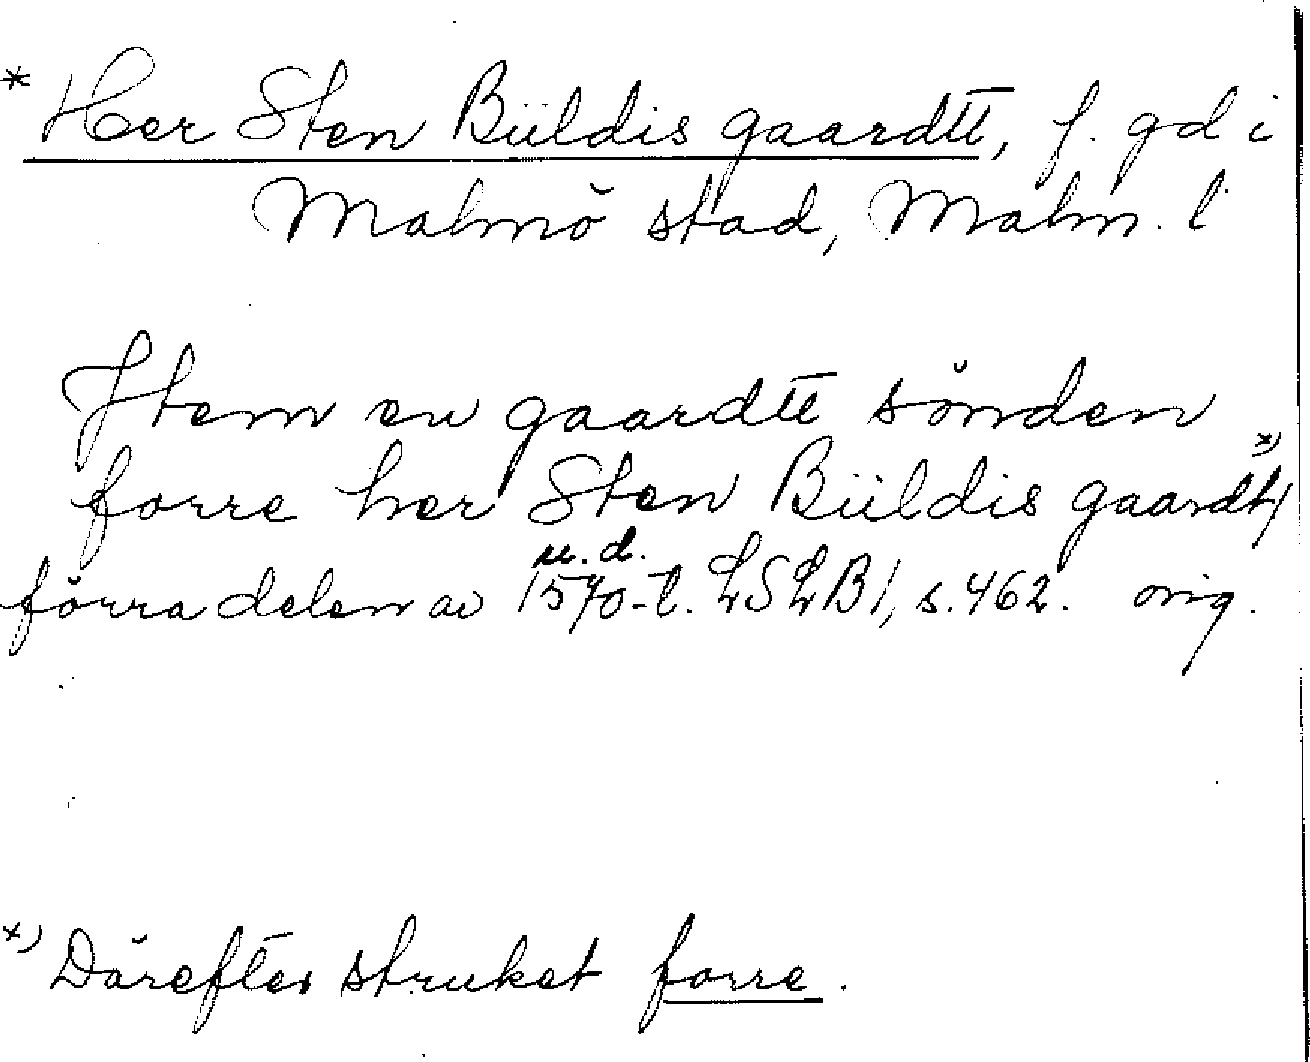 * Her Sten Büldis gaardtt, f. gd i
Malmö stad, Malm. l
Jtem en gaardtt sönden
forre her Sten Büldis gaardtt x)
u. d.
förra delen av 1570-t. LSLB 1, s. 462. orig.
x) Därefter struket forre.